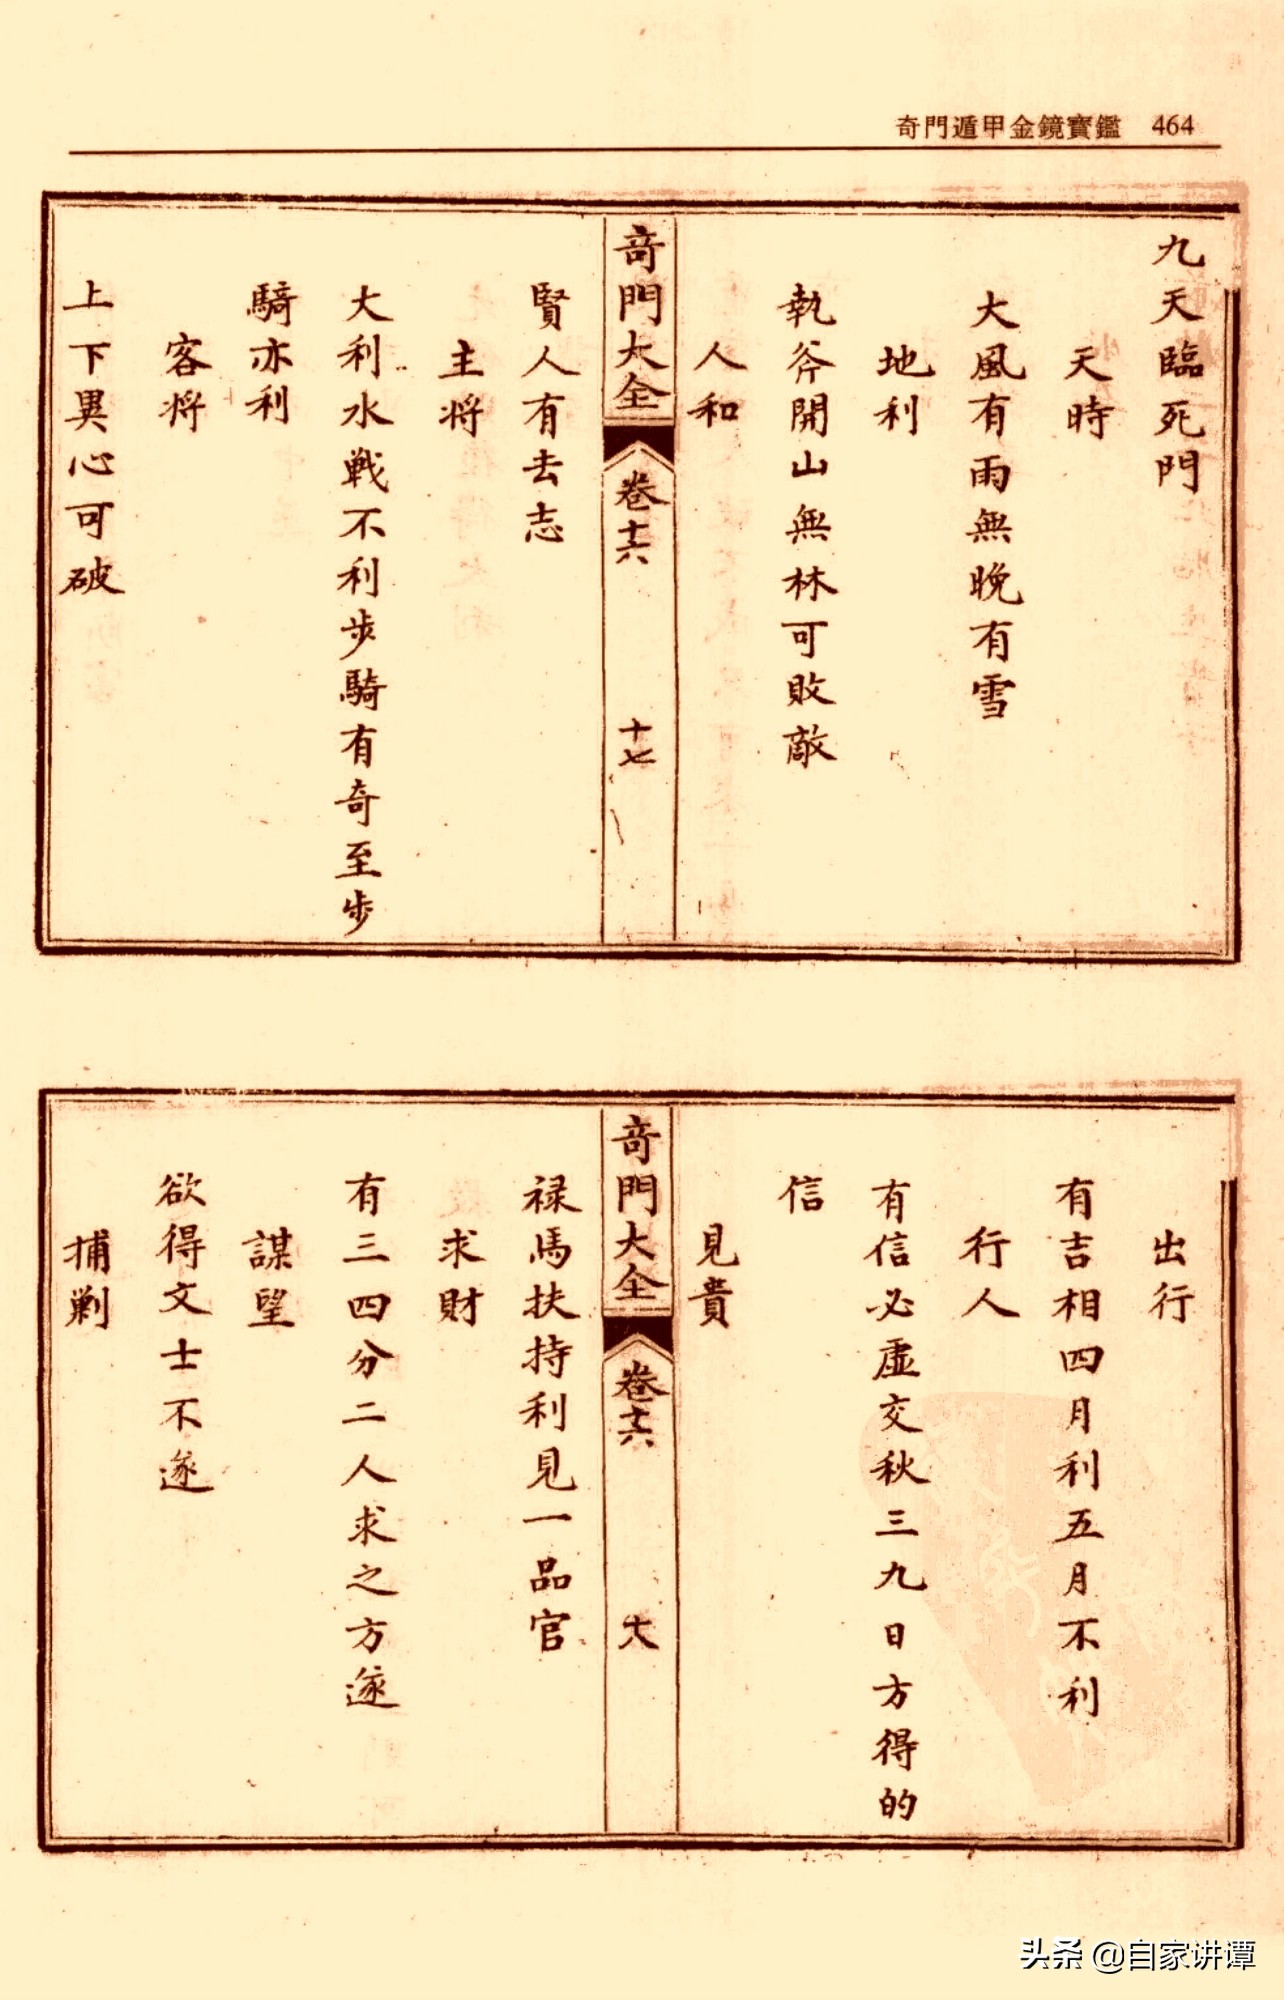 奇門遁甲金鏡寶鑑 464
九天臨死門
天時
大風有雨無晚有雪
地利
執斧開山無林可敗敵
人和
奇門大全 卷十六 十七
賢人有去志
主將
大利水戰不利步騎有奇至步
騎亦利
客將
上下異心可破
出行
有吉相四月利五月不利
行人
有信必虛交秋三九日方得的
信
見貴
奇門大全 卷十六 十八
祿馬扶持利見一品官
求財
有三四分二人求之方遂
謀望
欲得文士不遂
捕剿
头条 @自家讲谭